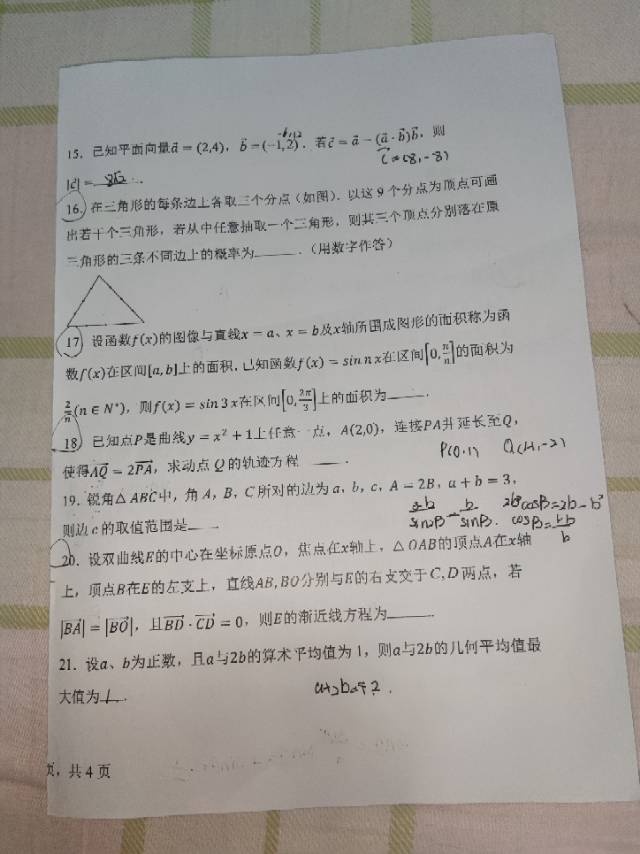 15. 已知平面向量a⃗ = (2,4), b⃗ = (−1,2). 若c⃗ = a⃗ − (a⃗ · b⃗)b⃗, 则
c = (8,-8)
|c⃗| = 8√2 .
16. 在三角形的每条边上各取三个分点（如图）. 以这 9 个分点为顶点可画
出若干个三角形, 若从中任意抽取一个三角形, 则其三个顶点分别落在原
三角形的三条不同边上的概率为______. （用数字作答）
17 设函数f(x)的图像与直线x = a、x = b及x轴所围成图形的面积称为函
数f(x)在区间[a, b]上的面积, 已知函数f(x) = sin n x在区间[0, π/n]的面积为
2/n (n ∈ N*), 则f(x) = sin 3 x在区间[0, 2π/3]上的面积为_____.
18 已知点P是曲线y = x² + 1上任意一点, A(2,0), 连接PA并延长至Q,
P(0,1)
使得AQ⃗ = 2PA⃗, 求动点 Q 的轨迹方程_____.
19. 锐角△ ABC中, 角 A, B, C 所对的边为 a, b, c, A = 2B, a + b = 3,
则边 c 的取值范围是_____
20. 设双曲线E的中心在坐标原点O, 焦点在x轴上, △ OAB的顶点A在x轴
上, 顶点B在E的左支上, 直线AB, BO分别与E的右支交于 C, D 两点, 若
|BA⃗| = |BO⃗|, 且BD⃗ · CD⃗ = 0, 则E的渐近线方程为______.
21. 设a、b为正数, 且a与2b的算术平均值为 1, 则a与2b的几何平均值最
大值为 1 .
页, 共 4 页